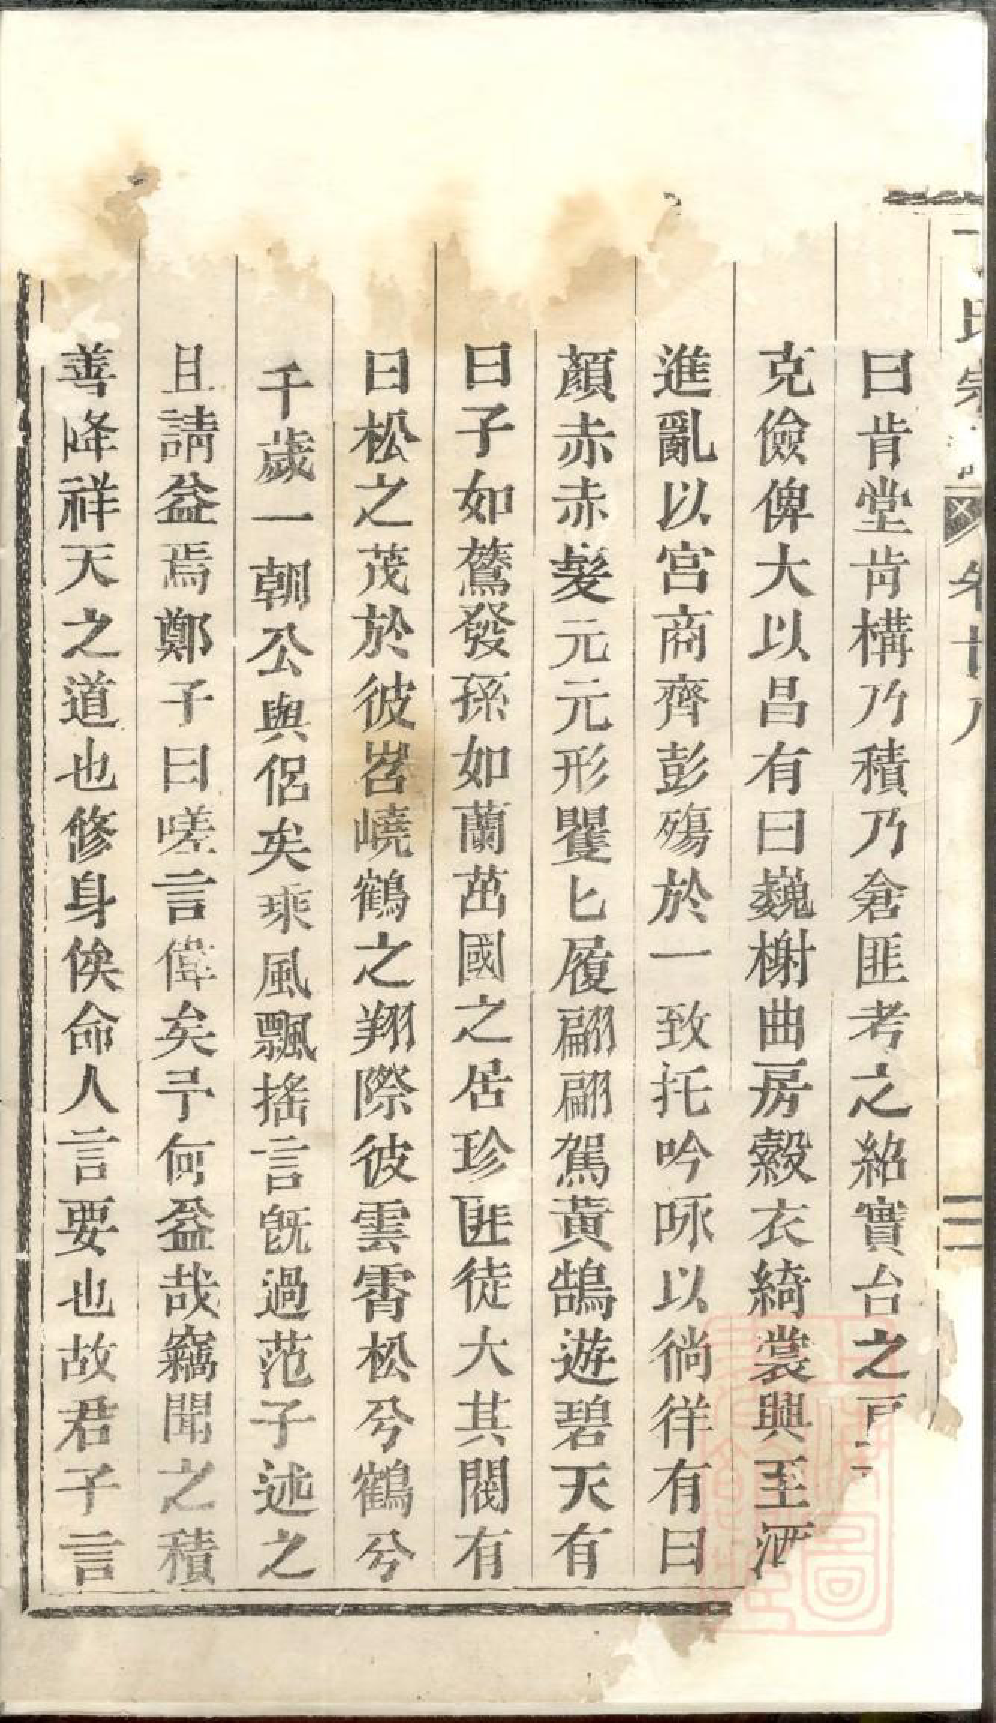 氏宗
卷廿八
二
曰肯堂肯構乃積乃倉匪考之紹實台之
克儉俾大以昌有曰巍榭曲房縠衣綺裳興至酒
進亂以宮商齊彭殤於一致托吟咏以徜徉有曰
顏赤赤髮元元形矍匕履翩翩駕黃鵠遊碧天有
曰子如鶩發孫如蘭茁國之居珍匪徒大其閥有
曰松之茂於彼岧嶢鶴之翔際彼雲霄松兮鶴兮
千歲一朝公與侶矣乘風飄搖言旣過范子述之
且請益焉鄭子曰嗟言偉矣予何益哉竊聞之積
善降祥天之道也修身俟命人言要也故君子言